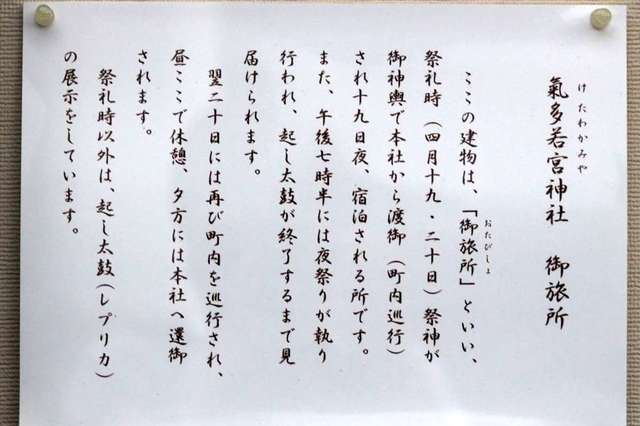 氣多若宮神社　御旅所
けたわかみや
ここの建物は、「御旅所」といい、
おたびしょ
祭礼時（四月十九・二十日）祭神が
御神輿で本社から渡御（町内巡行）
され十九日夜、宿泊される所です。
また、午後七時半には夜祭りが執り
行われ、起し太鼓が終了するまで見
届けられます。
翌二十日には再び町内を巡行され、
昼ここで休憩、夕方には本社へ還御
されます。
祭礼時以外は、起し太鼓（レプリカ）
の展示をしています。